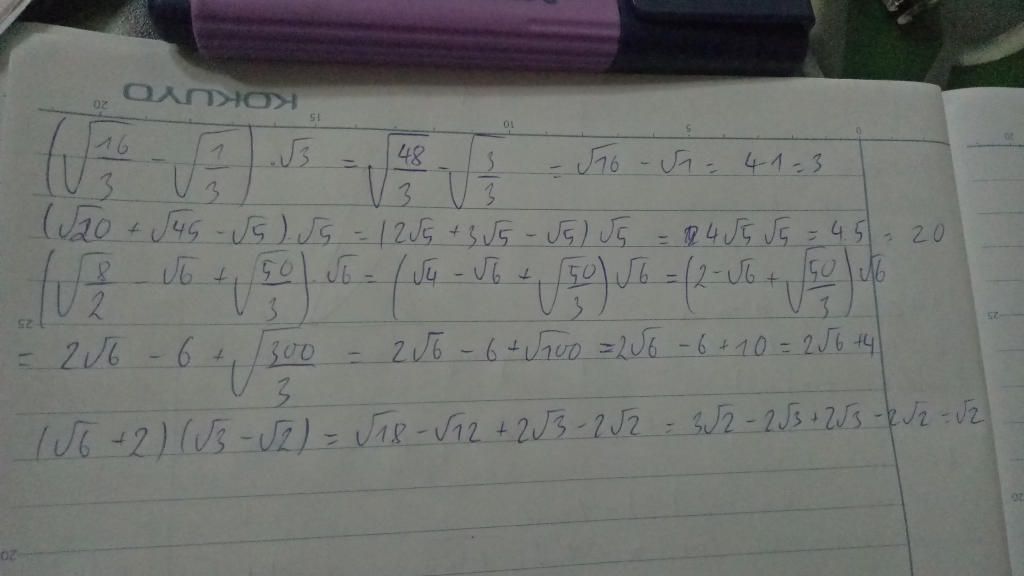 KOKUYO
20 15 10 5 0 20
(√16/3 - √1/3) . √3 = √48/3 - √3/3 = √16 - √1 = 4-1 = 3
(√20 + √45 - √5) . √5 = (2√5 + 3√5 - √5) √5 = 4√5 √5 = 4.5 = 20
(√8/2 - √6 + √50/3) . √6 = (√4 - √6 + √50/3) √6 = (2-√6 + √50/3) √6
25 25
= 2√6 - 6 + √300/3 = 2√6 - 6 + √100 = 2√6 - 6 + 10 = 2√6 + 4
(√6 + 2) (√3 - √2) = √18 - √12 + 2√3 - 2√2 = 3√2 - 2√3 + 2√3 - 2√2 = √2
20 20